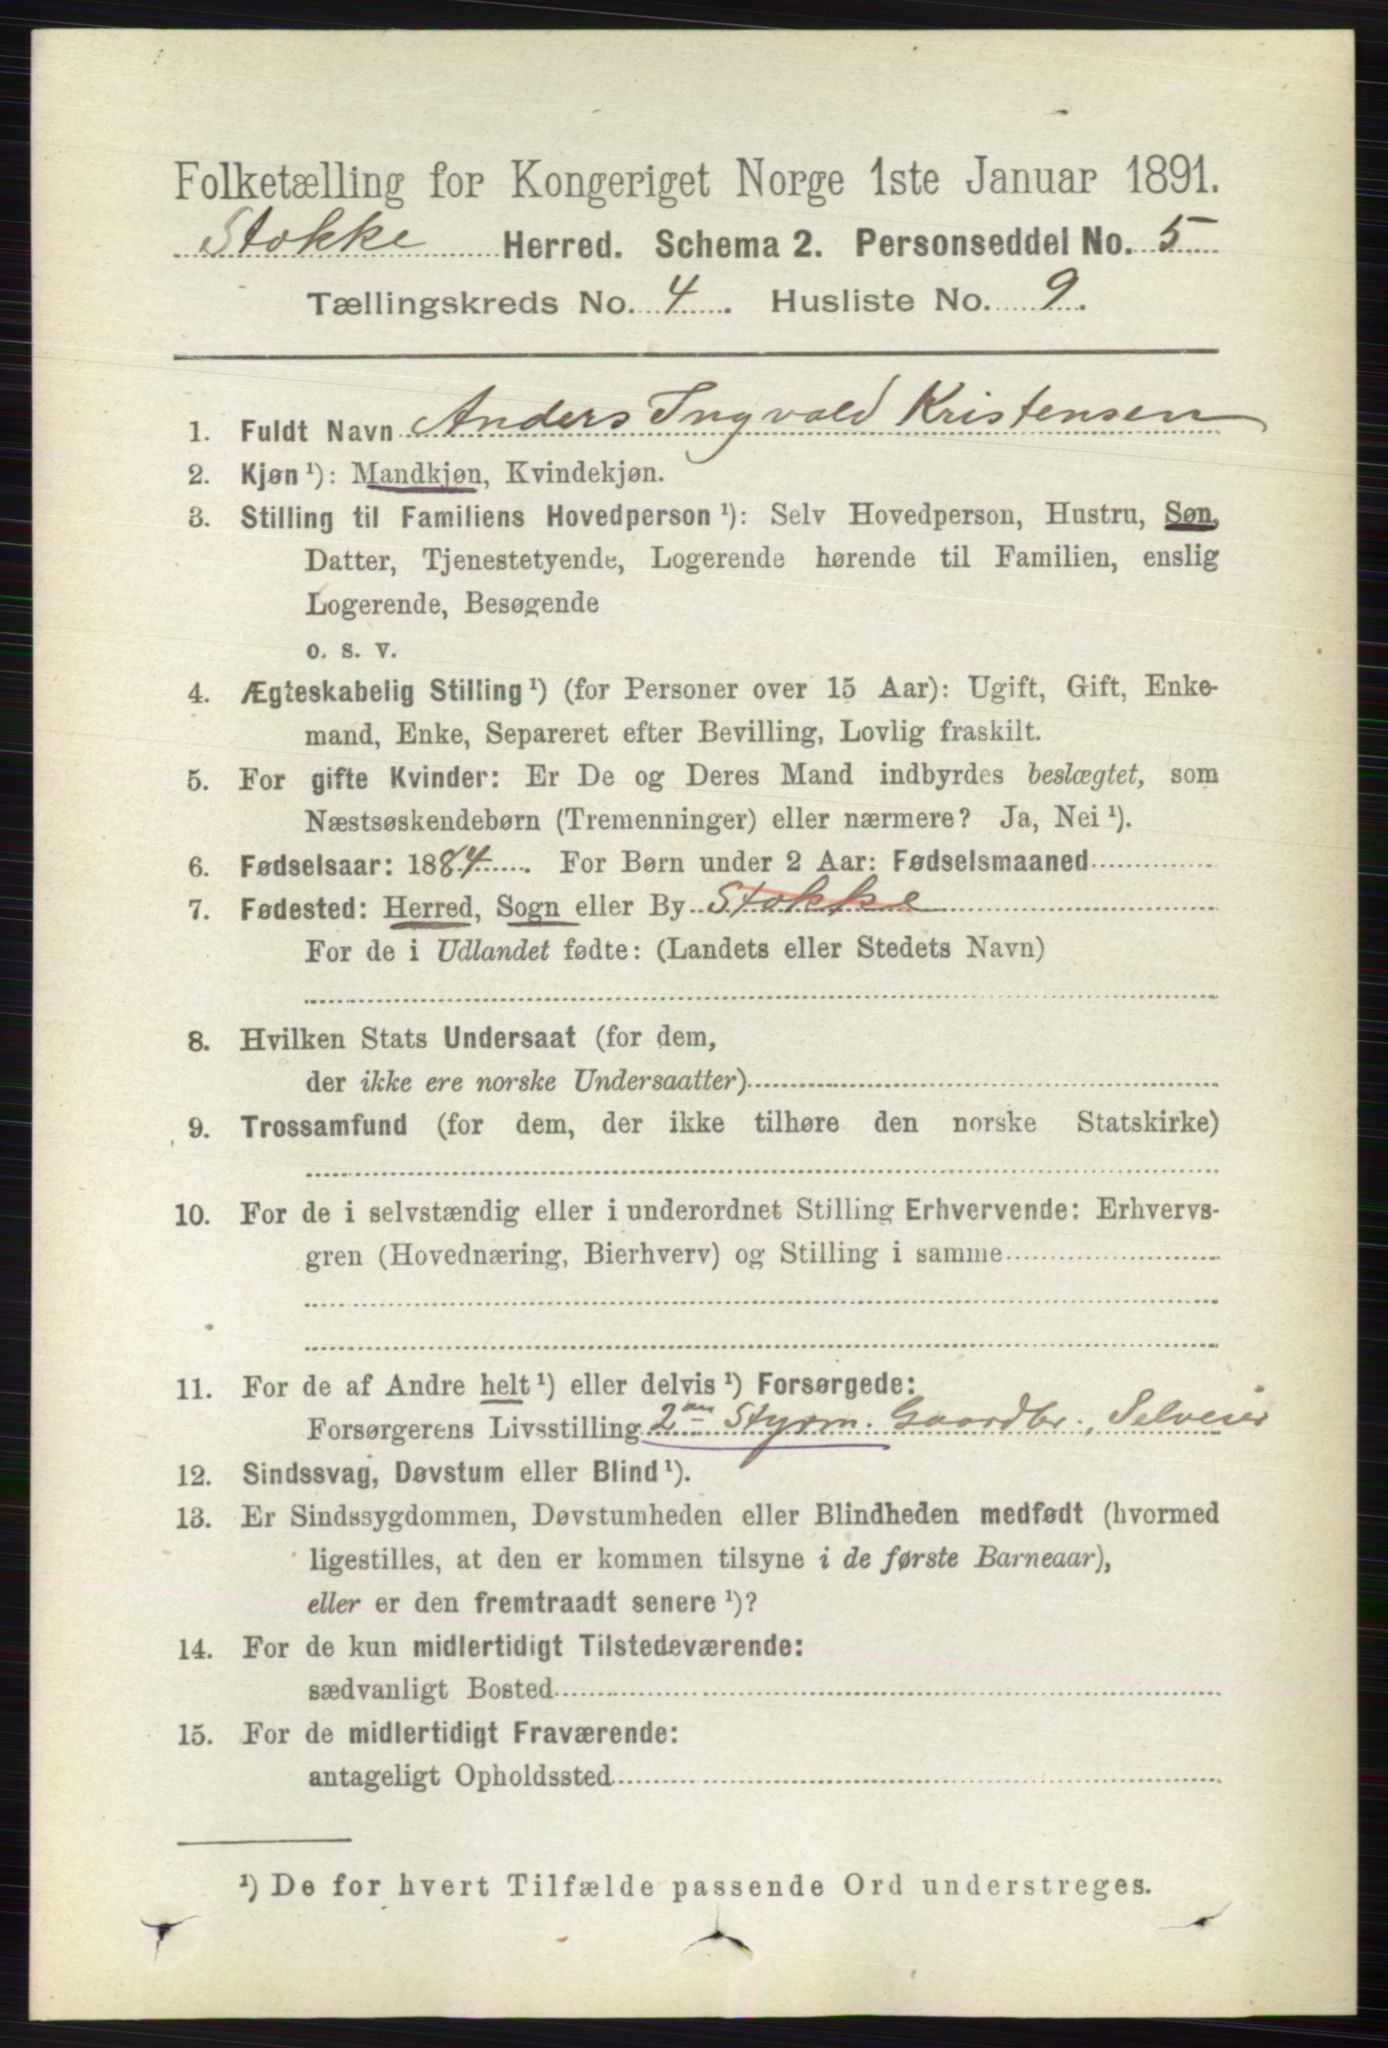 Folketælling for Kongeriget Norge 1ste Januar 1891.
Stokke Herred. Schema 2. Personseddel No. 5
Tællingskreds No. 4. Husliste No. 9.
1. Fuldt Navn Anders Ingvald Kristensen
2. Kjøn ¹): Mandkjøn, Kvindekjøn.
3. Stilling til Familiens Hovedperson ¹): Selv Hovedperson, Hustru, Søn,
Datter, Tjenestetyende, Logerende hørende til Familien, enslig
Logerende, Besøgende
o. s. v.
4. Ægteskabelig Stilling ¹) (for Personer over 15 Aar): Ugift, Gift, Enke-
mand, Enke, Separeret efter Bevilling, Lovlig fraskilt.
5. For gifte Kvinder: Er De og Deres Mand indbyrdes beslægtet, som
Næstsøskendebørn (Tremenninger) eller nærmere? Ja, Nei ¹).
6. Fødselsaar: 1884. For Børn under 2 Aar: Fødselsmaaned
7. Fødested: Herred, Sogn eller By Stokke
For de i Udlandet fødte: (Landets eller Stedets Navn)
8. Hvilken Stats Undersaat (for dem,
der ikke ere norske Undersaatter)
9. Trossamfund (for dem, der ikke tilhøre den norske Statskirke)
10. For de i selvstændig eller i underordnet Stilling Erhvervende: Erhvervs-
gren (Hovednæring, Bierhverv) og Stilling i samme
11. For de af Andre helt ¹) eller delvis ¹) Forsørgede:
Forsørgerens Livsstilling 2en Styrm. Gaardbr., Selveier
12. Sindssvag, Døvstum eller Blind ¹).
13. Er Sindssygdommen, Døvstumheden eller Blindheden medfødt (hvormed
ligestilles, at den er kommen tilsyne i de første Barneaar),
eller er den fremtraadt senere ¹)?
14. For de kun midlertidigt Tilstedeværende:
sædvanligt Bosted
15. For de midlertidigt Fraværende:
antageligt Opholdssted
¹) De for hvert Tilfælde passende Ord understreges.